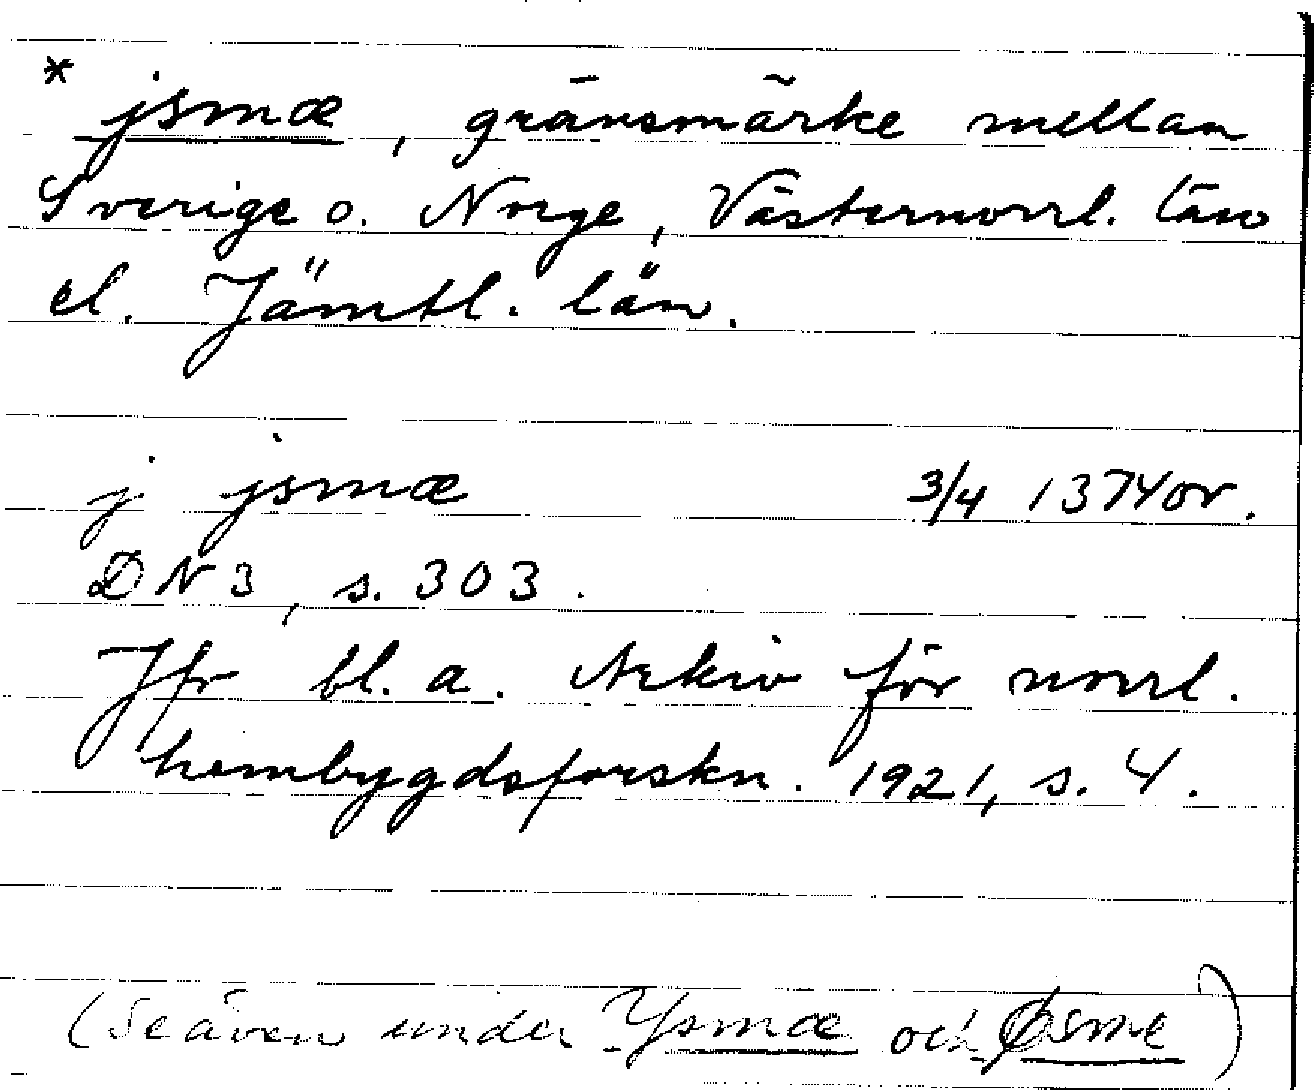 * jsmæ, gränsmärke mellan
Sverige o. Norge, Västernorrl. län
el. Jämtl. län.
j jsmæ 3/4 1374 or.
DN 3, s. 303.
Jfr bl. a. Arkiv för norrl.
hembygdsforskn. 1921, s. 4.
(Se även under Ysmæ och Øsme)